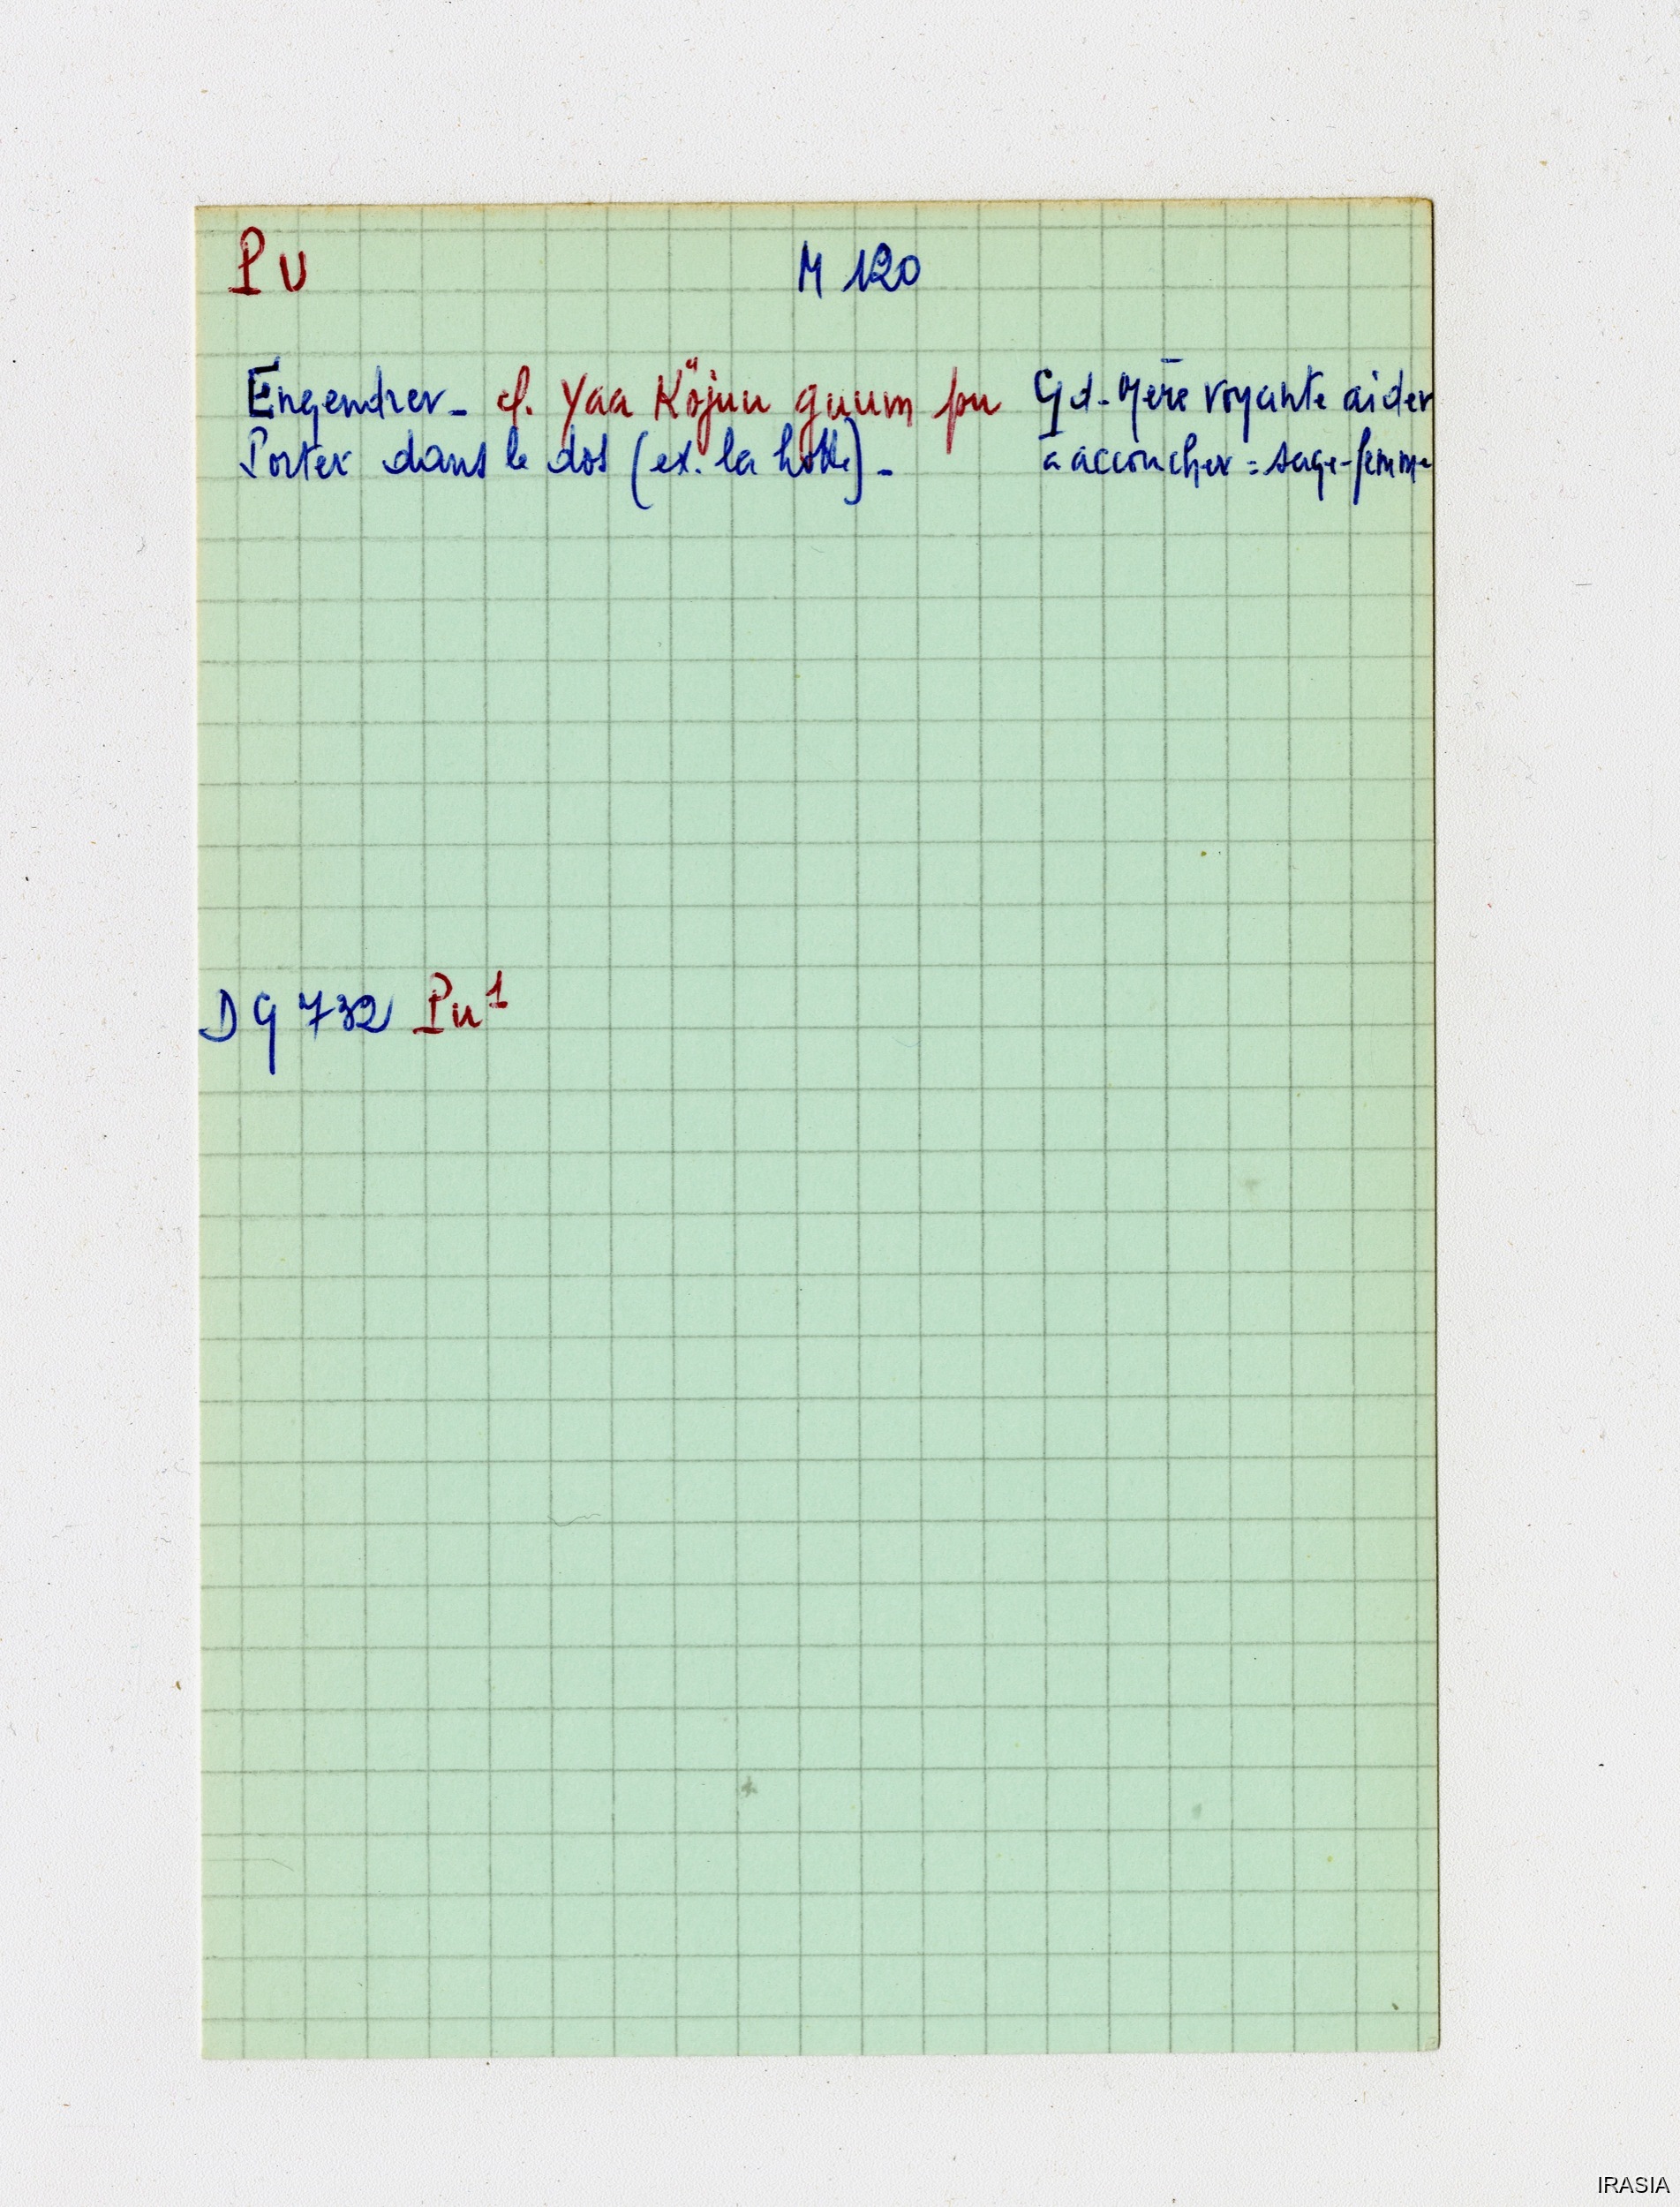 PU M 120
Engendrer - cf. Yaa Köjuu guum pu Gd. Mère voyante aider
Porter dans le dos (ex. la hotte) - à accoucher = sage-femme
DG 732 Pu¹
IRASIA